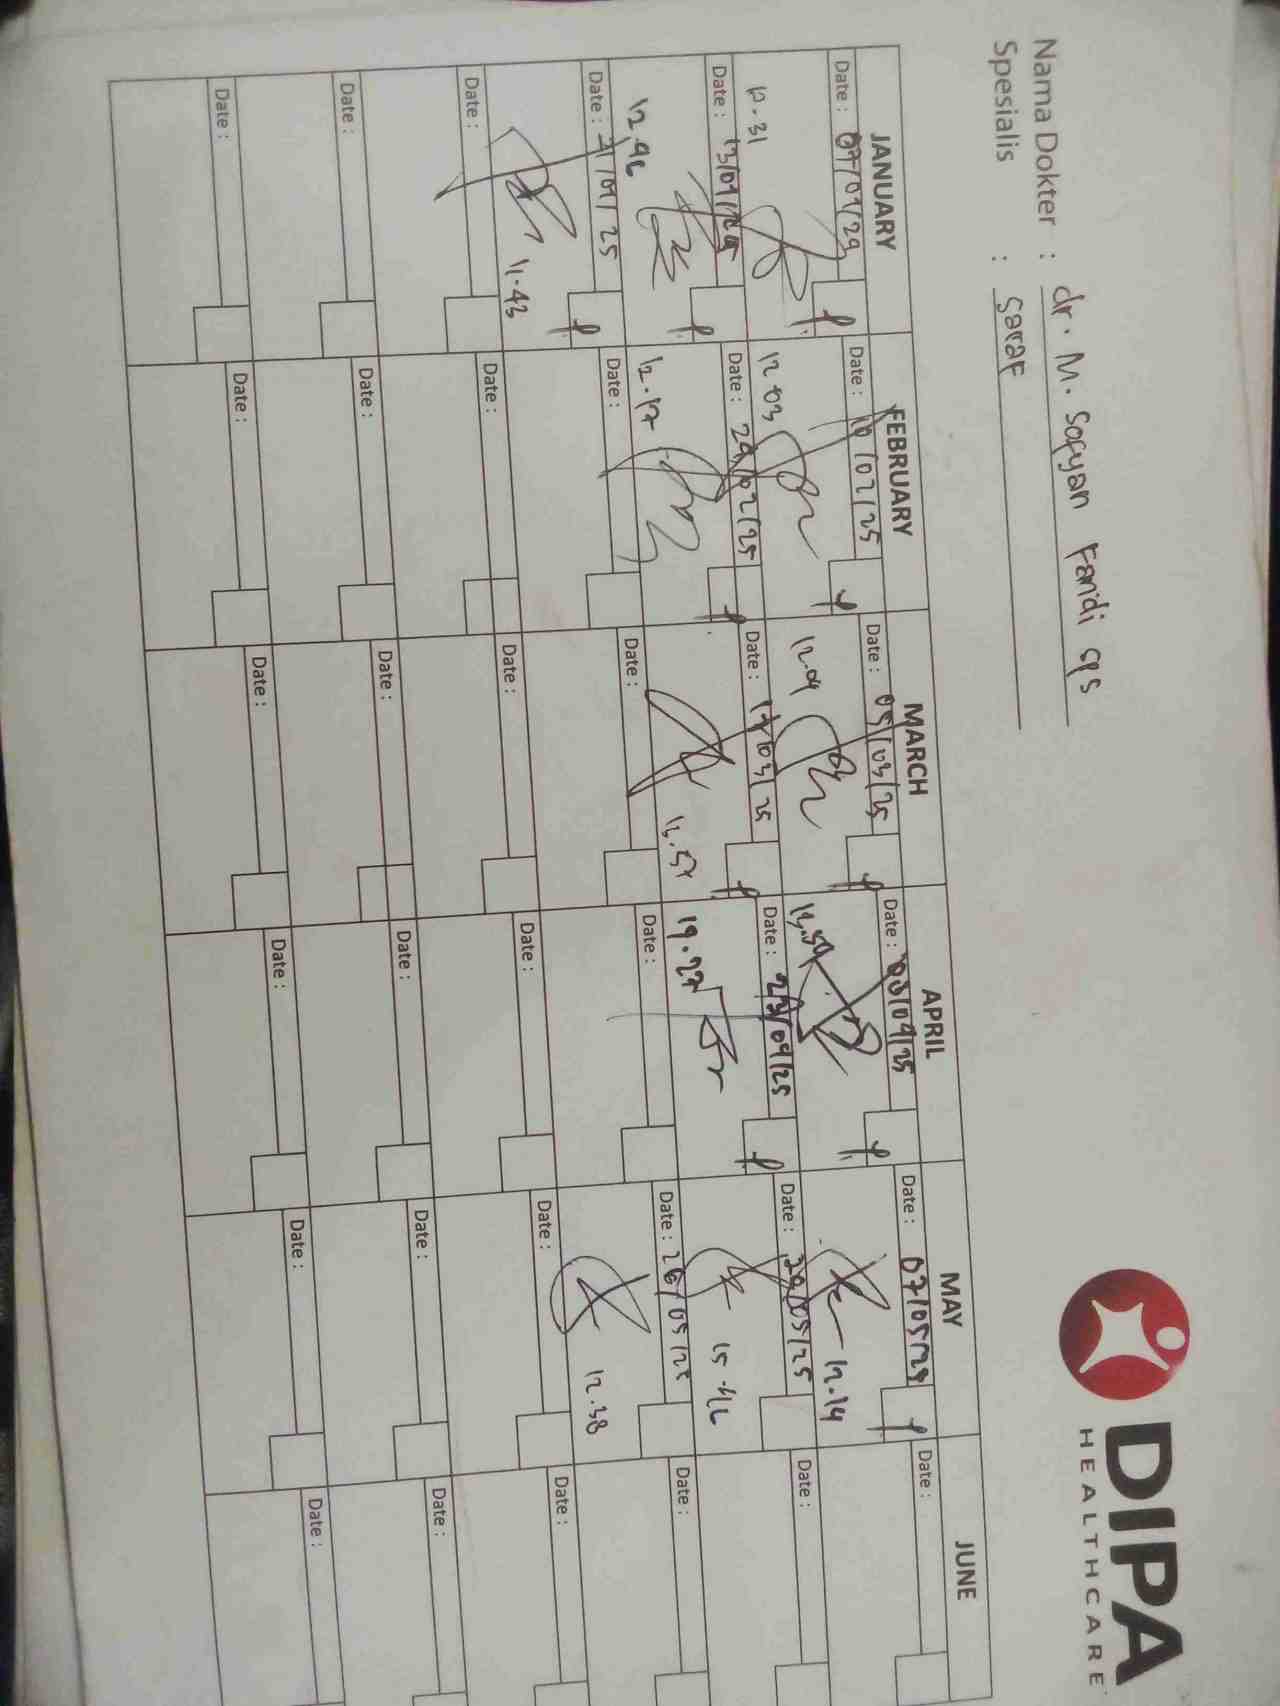 DIPA
HEALTHCARE
Nama Dokter : dr. M. Sofyan Faridi sps
Spesialis : saraf
JANUARY FEBRUARY MARCH APRIL MAY JUNE
Date : 07/01/25 Date : 10/02/25 Date : 05/03/25 Date : 08/04/25 Date : 07/05/25 Date :
12.31 12.03 12.04 12.54 12.14
Date : 13/01/25 Date : 24/02/25 Date : 17/03/25 Date : 23/04/25 Date : 20/05/25 Date :
12.46 12.17 12.57 19.27 15.46
Date : 21/01/25 Date : Date : Date : Date : 26/05/25 Date :
11.43 12.38
Date : Date : Date : Date : Date : Date :
Date : Date : Date : Date : Date : Date :
Date : Date : Date : Date : Date : Date :